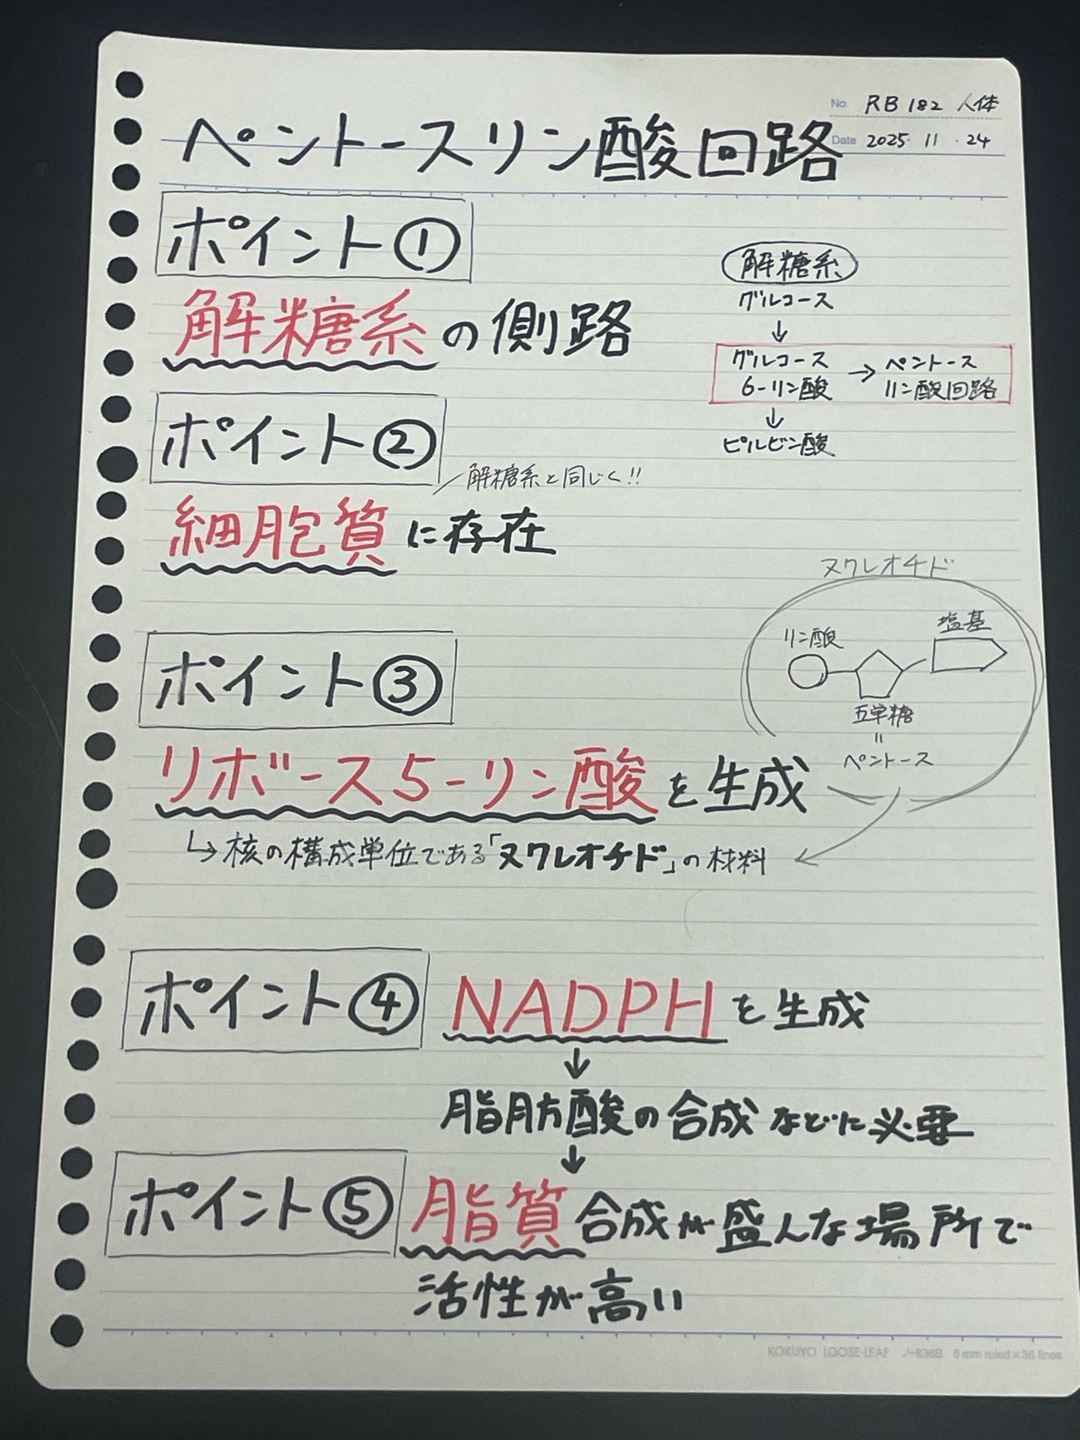 No. RB 182 人体
Date 2025. 11 . 24
ペントースリン酸回路
ポイント①
解糖系の側路
解糖系
グルコース
↓
グルコース
6-リン酸 → ペントース
リン酸回路
↓
ピルビン酸
ポイント②
解糖系と同じく!!
細胞質に存在
ポイント③
ヌクレオチド
リン酸
塩基
五単糖
=
ペントース
リボース5-リン酸を生成
↳核の構成単位である「ヌクレオチド」の材料
ポイント④ NADPHを生成
↓
脂肪酸の合成などに必要
↓
ポイント⑤ 脂質合成が盛んな場所で
活性が高い
KOKUYO LOOSE-LEAF ノ-836B 6 mm ruled×36 lines